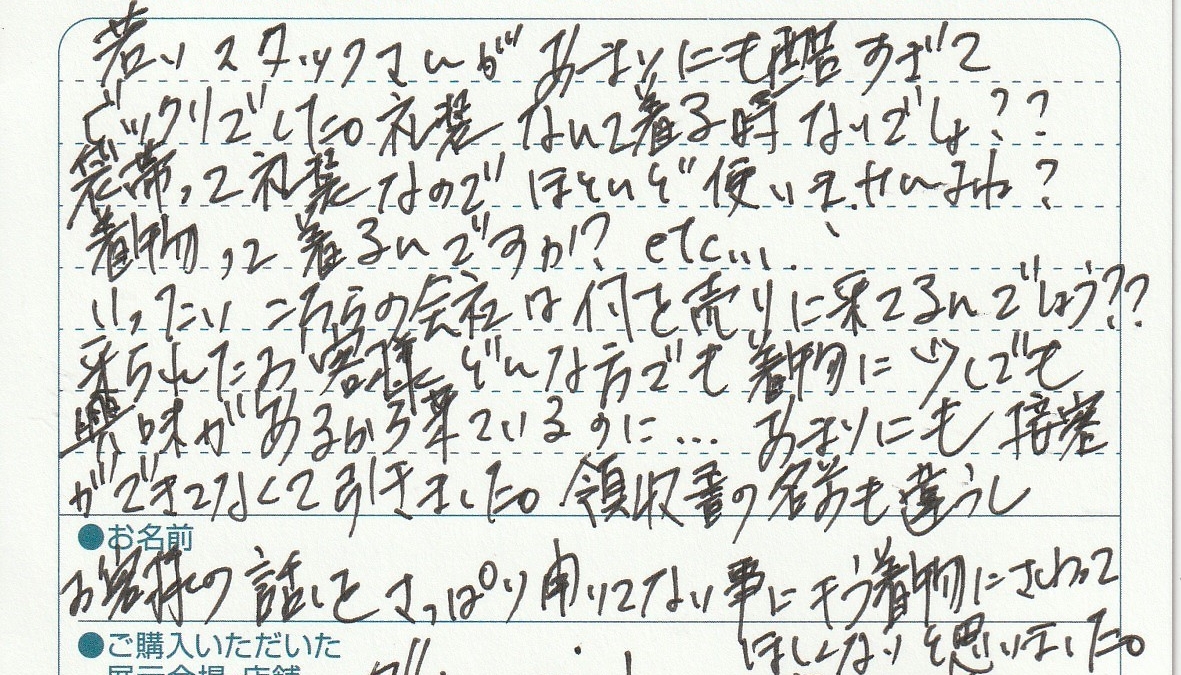 若いスタッフさんがあまりにも酷すぎて
ビックリでした。礼装ないて着る時ないでしょ??
袋帯って礼装なのでほとんど使いませんよね?
着物って着るんですか!? etc....
いったいこちらの会社は何を売りに来てるんでしょう??
来られたお客様どんな方でも着物に少しでも
興味があるから来ているのに… あまりにも接客
ができてなくて引きました。領収書の名前も違うし
●お名前
お客様の話しをさっぱり聞いてない事にもう着物にさわって
ほしくないと思いました。
●ご購入いただいた
展示会場・店舗